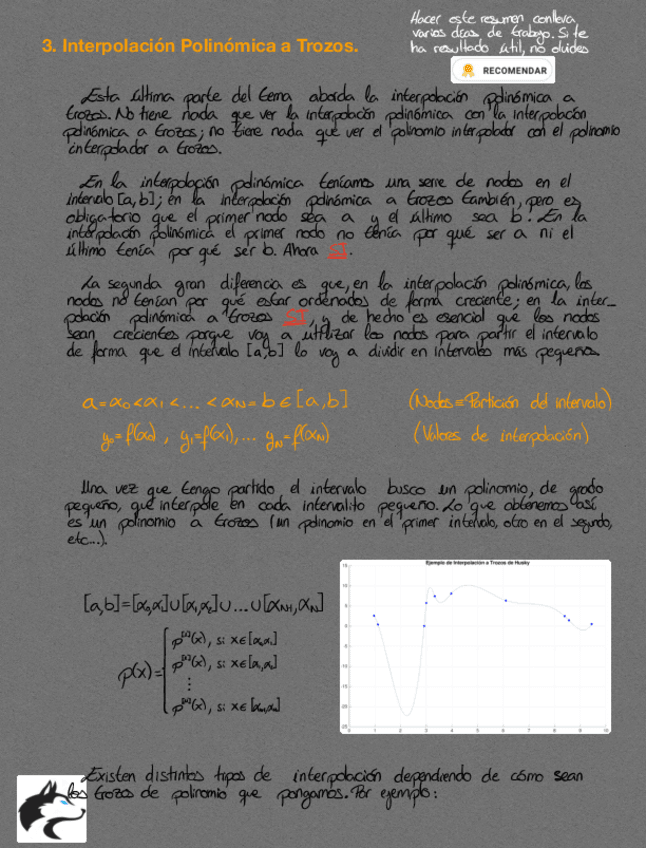 Hacer este resumen conlleva
varios días de trabajo. Si te
ha resultado útil, no olvides
RECOMENDAR
3. Interpolación Polinómica a Trozos.
Esta última parte del tema aborda la interpolación polinómica a
trozos. No tiene nada que ver la interpolación polinómica con la interpolación
polinómica a trozos; no tiene nada que ver el polinomio interpolador con el polinomio
interpolador a trozos.
En la interpolación polinómica teníamos una serie de nodos en el
intervalo [a,b]; en la interpolación polinómica a trozos también, pero es
obligatorio que el primer nodo sea a y el último sea b. En la
interpolación polinómica el primer nodo no tenía por qué ser a ni el
último tenía por qué ser b. Ahora SI.
La segunda gran diferencia es que, en la interpolación polinómica, los
nodos no tenían por qué estar ordenados de forma creciente; en la inter_
polación polinómica a trozos SI, y de hecho es esencial que los nodos
sean crecientes porque voy a utilizar los nodos para partir el intervalo
de forma que el intervalo [a,b] lo voy a dividir en intervalos más pequeños.
a=x₀<x₁<...<x_N=b∈[a,b] (Nodos≡Partición del intervalo)
y₀=f(x₀), y₁=f(x₁),... y_N=f(x_N) (Valores de interpolación)
Una vez que tengo partido el intervalo busco un polinomio, de grado
pequeño, que interpole en cada intervalito pequeño. Lo que obtenemos así
es un polinomio a trozos (un polinomio en el primer intervalo, otro en el segundo,
etc...).
Ejemplo de Interpolación a Trozos de Husky
15
10
5
0
-5
-10
-15
-20
-25
0 1 2 3 4 5 6 7 8 9 10
[a,b]=[x₀,x₁]∪[x₁,x₂]∪...∪[x_N-1,x_N]
p(x)=
p⁽¹⁾(x), si x∈[x₀,x₁]
p⁽²⁾(x), si x∈[x₁,x₂]
⋮
p⁽ᴺ⁾(x), si x∈[x_N-1,x_N]
Existen distintos tipos de interpolación dependiendo de cómo sean
los trozos de polinomio que pongamos. Por ejemplo: